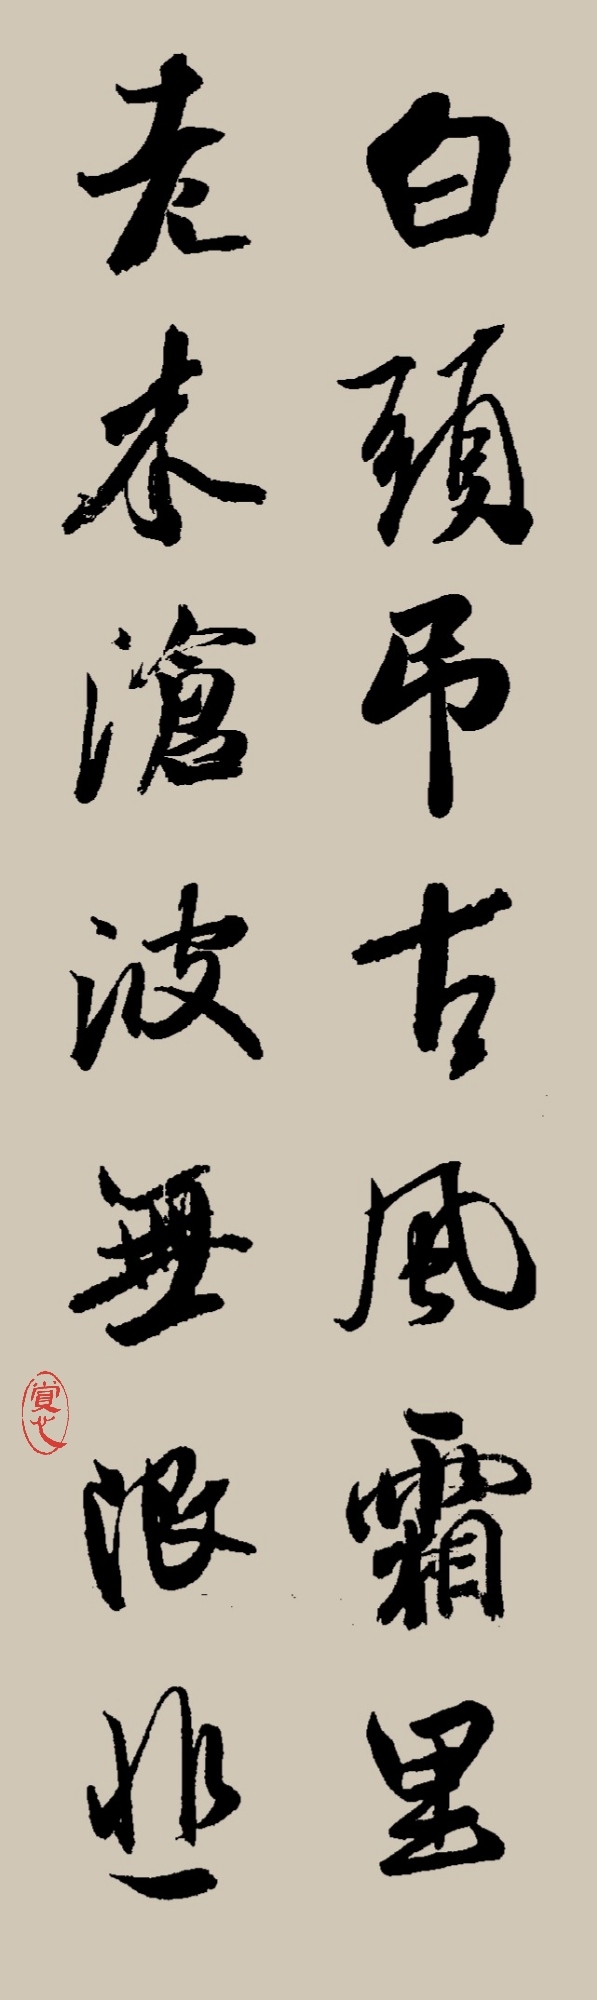 白頭弔古風霜里
老木滄波無限悲
賞心